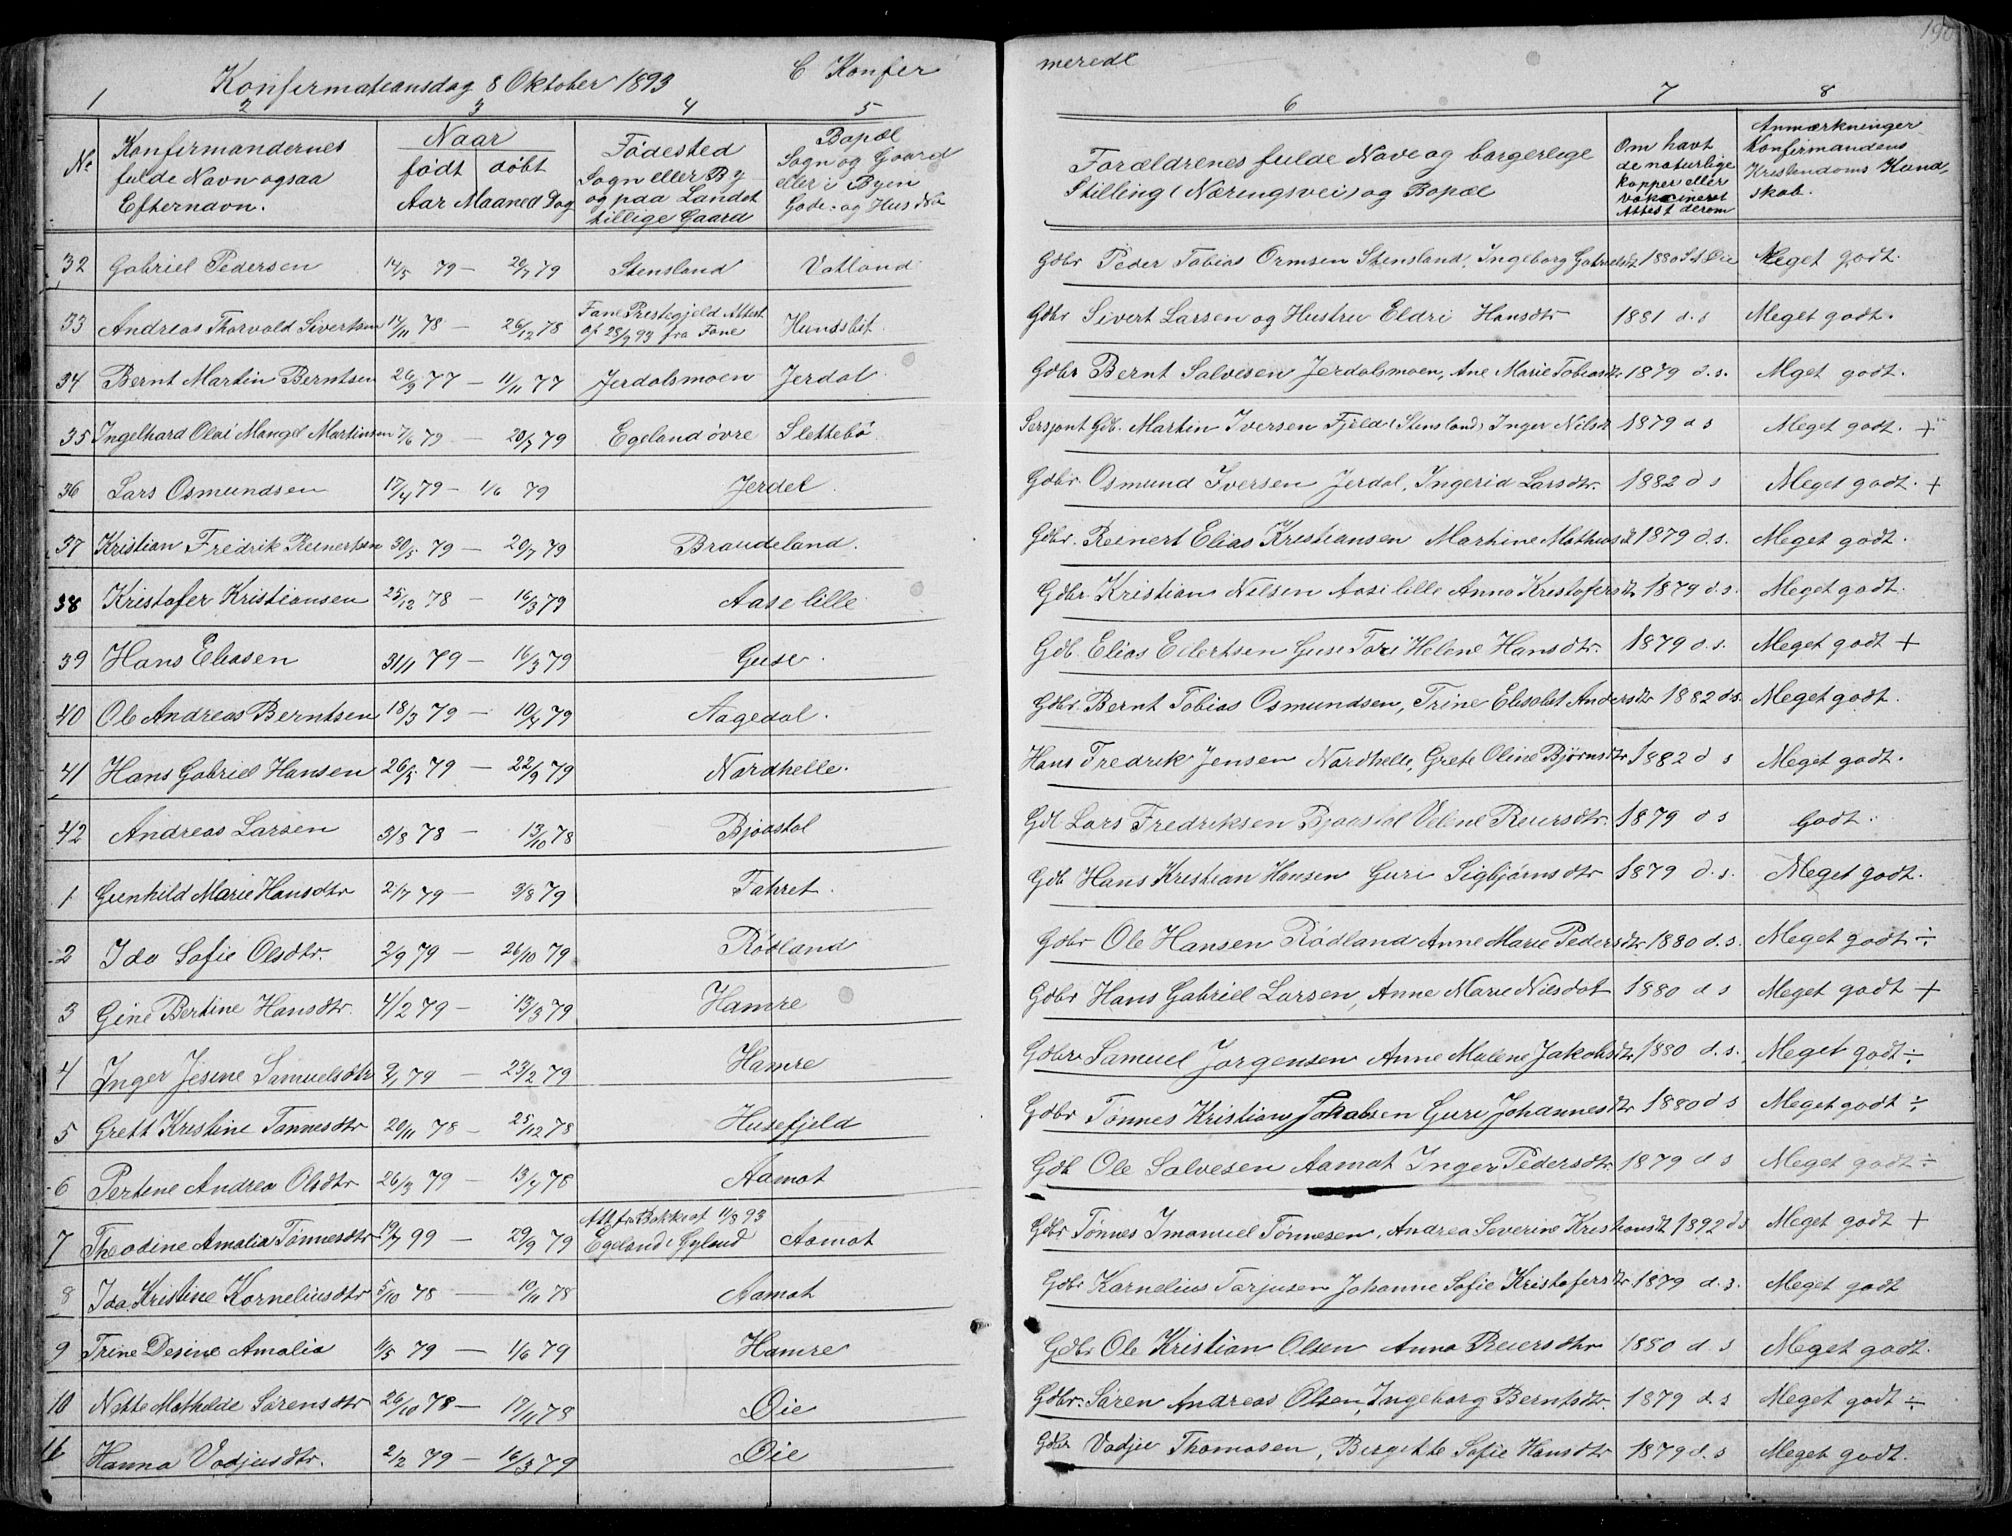 190
Konfirmationsdag 8 Oktober 1893 C Konfer merede
1 2 3 4 5 6 7 8
No Konfirmandernes fulde Navn ogsaa Efternavn. Naar født døbt Aar Maaned Dag Fødested Sogn eller By og paa Landet tillige Gaard Bopæl Sogn og Gaard eller i Byen Gade. og Hus No Forældrenes fulde Nave og borgerlige Stilling (Næringsvei) og Bopæl Om havt de naturlige kopper eller vakcineret Attest derom Anmærkninger Konfirmandens Kristendoms Kundskab.
32 Gabriel Pedersen 14/5 79 — 20/7 79 Stensland Vatland Gdbr Peder Tobias Ormsen Stensland, Ingeborg Gabrielsdt 1880 St Øie Meget godt.
33 Andreas Thorvald Sivertsen 17/11 78 — 26/12 78 Fane Prestegjeld Attest af 28/9 93 fra Fane Hundsbit. Gdbr Sivert Larsen og Hustru Eldri Hansdtr 1881 d. s Meget godt.
34 Bernt Martin Berntsen 26/9 77 — 11/11 77 Jerdalsmoen Jerdal. Gdbr Bernt Salvesen Jerdalsmoen, Ane Marie Tobiasdtr 1879 d. s. Mget godt.
35 Ingelhard Olai Mangel Martinsen 7/6 79 — 20/7 79 Egeland övre Slettebö Sersjant Gdb. Martin Iversen Fjeld (Stensland) Inger Nilsdt 1879 d s Meget godt. +
36 Lars Osmundsen 17/4 79 — 1/6 79 Jerdel. Gdbr Osmund Iversen Jerdal, Ingerid Larsdtr. 1882 d s Meget godt. +
37 Kristian Fredrik Reinertsen 30/5 79 — 20/7 79 Braudeland. Gdbr. Reinert Elias Kristiansen Martine Mathiasdt 1879 d. s. Meget godt.
38 Kristofer Kristiansen 25/12 78 — 16/3 79 Aase lille Gdbr. Kristian Nilsen Aase lille Anna Kristofersdtr 1879 d. s. Meget godt.
39 Hans Eliasen 31/1 79 — 16/3 79 Guse. Gdb. Elias Eilertsen Guse Tori Helene Hansdtr. 1879 d. s. Meget godt +
40 Ole Andreas Berntsen 18/3 79 — 10/4 79 Aagedal. Gdbr. Bernt Tobias Osmundsen, Trine Elisabet Andersdtr 1882 ds. Meget godt.
41 Hans Gabriel Hansen 26/5 79 — 22/9 79 Nordhelle. Hans Fredrik Jensen Nordhelle, Grete Oline Bjørnsdtr 1882 d s Meget godt.
42 Andreas Larsen 3/8 78 — 13/10 78 Bjoastol Gdb Lars Fredriksen Bjoastol Velene Reiersdtr. 1879 d s Godt.
1 Gunhild Marie Hansdtr 2/7 79 — 3/8 79 Takret. Gdb Hans Kristian Hansen Guri Sigbjørnsdtr 1879 d. s. Meget godt.
2 Ida Sofie Olsdtr. 2/9 79 — 26/10 79 Rödland Gdbr Ole Hansen Rödland Anne Marie Pedersdtr 1880 d. s. Meget godt ÷
3 Gine Bertine Hansdtr. 4/2 79 — 13/3 79 Hamre Gdbr Hans Gabriel Larsen, Anne Marie Nilsdot 1880 d s Meget godt +
4 Inger Jesine Samuelsdtr 9/1 79 — 23/2 79 Hamre Gdbr Samuel Jorgensen Anne Malene Jakobsdtr 1880 d. s. Meget godt ÷
5 Grett Kristine Tønnesdtr 20/11 78 — 25/12 78 Husefjeld Gdbr Tønnes Kristians Jakobsen Guri Johannesdtr 1880 d s Meget godt ÷
6 Pertene Andrea Olsdtr 26/3 79 — 13/4 78 Aamot Gdb Ole Salvesen Aamot Inger Pedersdtr 1879 d s Meget godt ÷
7 Theodine Amalia Tønnesdtr 19/7 99 — 29/9 79 Att fra Bakke af 11/8 93 Egeland i Gyland Aamot Gdbr Tønnes Imanuel Tønnesen, Andrea Severine Kristiansdt 1892 ds Meget godt +
8 Ida Kristine Kornelius dtr 5/10 78 — 10/11 78 Aamot Gdbr Karnelius Tarjusen Johanne Sofie Kristofersdtr 1879 d. s. Meget godt
9 Trine Desine Amalia 11/5 79 — 1/6 79 Hamre Gdbr Ole Kristian Olsen Anna Reiersdtr 1880 d. s Meget godt.
10 Nette Mathilde Sørensdtr 26/10 78 — 17/11 78 Øie Gdbr. Søren Andreas Olsen, Ingeborg Berntsdtr. 1879 d. s Meget godt ÷
11 Hanna Vadjusdtr. 2/2 79 — 16/3 79 Øie Gdbr Vadjie Thomasen, Bergitte Sofie Hansdtr 1879 d. s Meget godt.